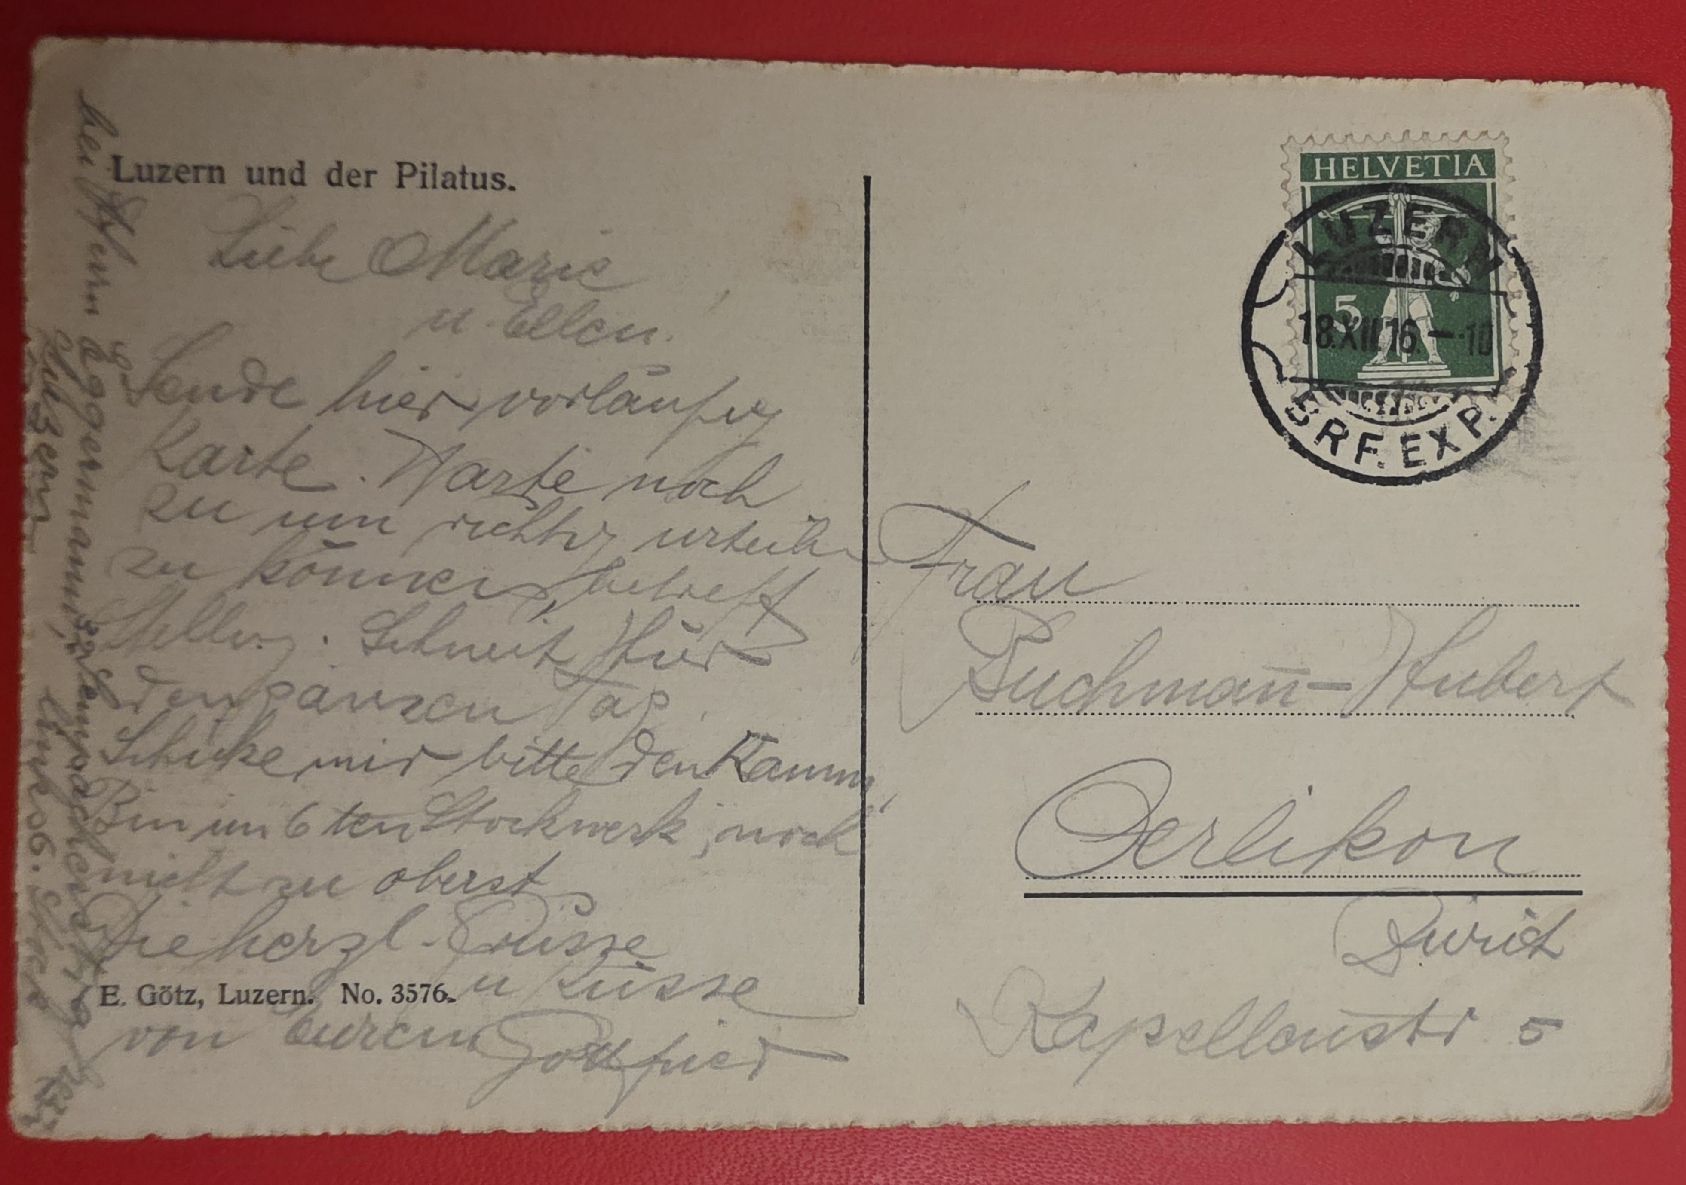 Luzern und der Pilatus.
Liebe Marie
u. Ellen!
Sende hier vorläufig
Karte. Warte noch
zu um richtig urteilen
zu können, betreff
Stellung. Schneit hier
den ganzen Tag.
Schicke mir bitte den Kamm,
Bin im 6ten Stockwerk, noch
nicht zu oberst
Die herzl. Grüsse
u Küsse
von Eurem Gottfried
E. Götz, Luzern. No. 3576.
bei Herrn Aggermann, Sempacherstrg
Luzern links 6. Stock
HELVETIA
5
LUZERN
18.XII.16.–10
BRF. EXP.
Frau
Buchman̄-Hubert
Oerlikon
Zürich
Kapellenstr 5